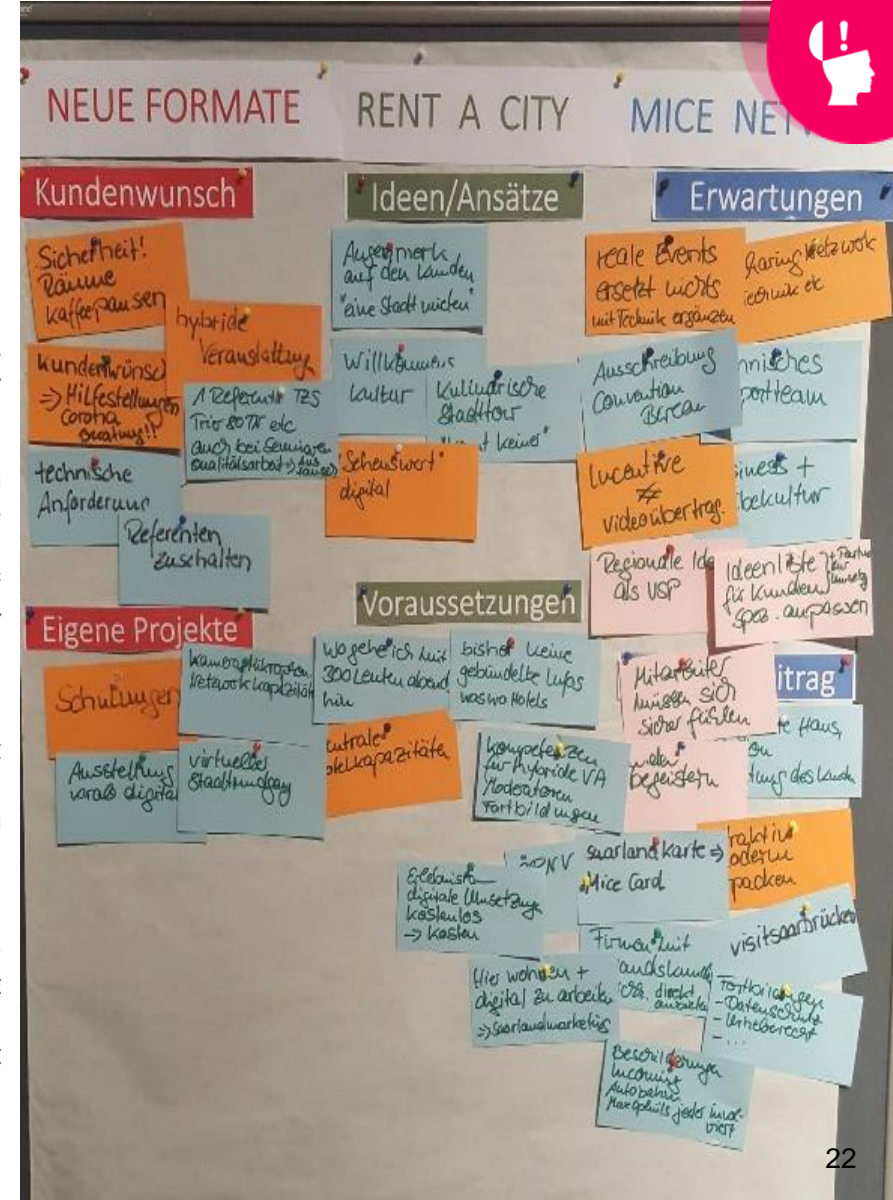 NEUE FORMATE
RENT A CITY
MICE NET
Kundenwunsch
Sicherheit!
Räume
Kaffeepausen
hybride
Veranstaltung
kundenwünsc
=> Hilfestellungen
Corona
Beratung!!
1 Referent TZS
Trier etc
auch bei Seminaren
Qualitätsarbeit =>
technische
Anforderung
Referenten
zuschalten
Eigene Projekte
Schulungen
Network kapazität
Ausstellung
digital
virtueller
Stadtrundgang
Ideen/Ansätze
Augenmerk
auf den Kunden
"eine Stadt mieten"
Willkommens
kultur
Kulinarische
Stadttour
t keiner"
"Sehenswert"
digital
Voraussetzungen
wo gehe ich mit
300 Leuten abend
hin
bisher keine
gebündelte Infos
was wo Hotels
entrale
telkapazitäten
Kompetenzen
für hybride VA
Moderatoren
Fortbildungen
ÖPNV
Erlebnis
digitale Umsetzung
kostenlos
-> Kosten
Hier wohnen +
digital zu arbeiten
=> Saarlandmarketing
Erwartungen
reale Events
ersetzt nichts
mit Technik ergänzen
haring Netzwork
echnik etc
Ausschreibung
Convention
Bureau
hnisches
portteam
Incentive
≠
videoübertrag.
iness +
bekultur
Regionale Ide
als USP
Ideenliste
für Kunden
spez. anpassen
+ Partner
zur
Umsetzg
itrag
Mitarbeiter
müssen sich
sicher fühlen
begeistern
te Haus,
on
tung des Kunden
saarland karte =>
Mice Card
raktiv
odern
packen
Firmen mit
direkt
visitsaarbrücken
Fortbildungen
- Datenschutz
- Urheberrecht
- ...
Beschilderungen
Incoming
Autobahn
jeder invol-
viert
22